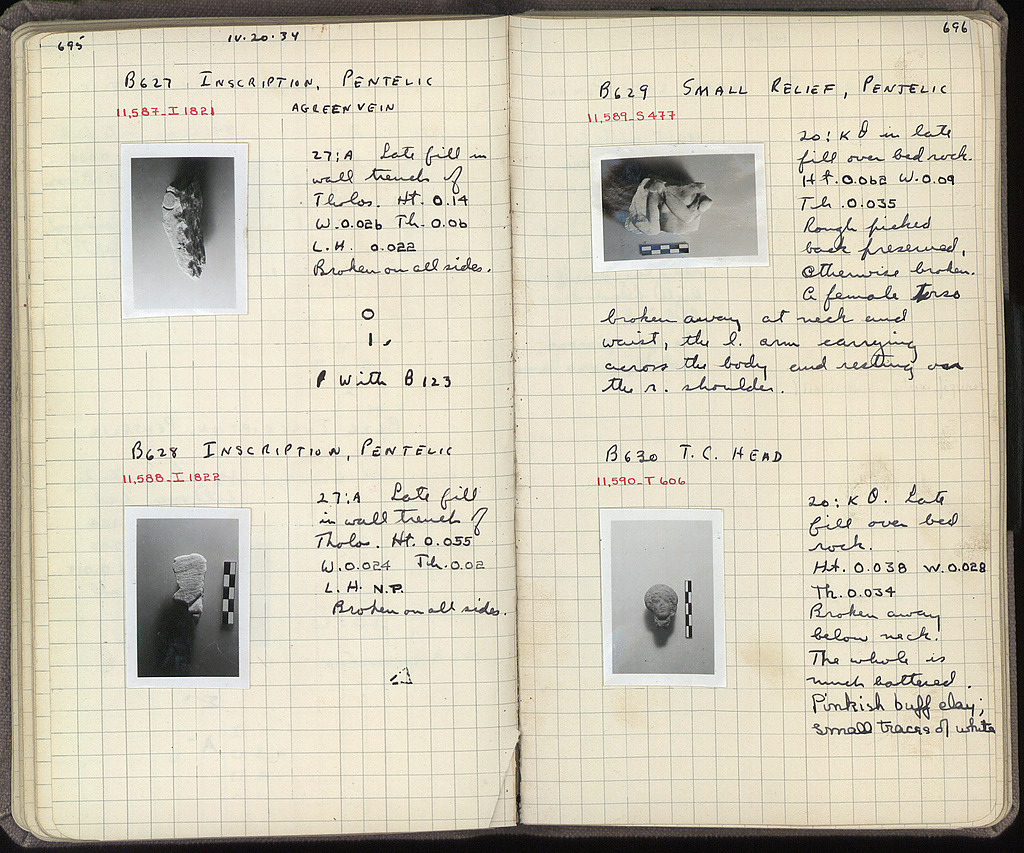 695
IV.20.34
B627 INSCRIPTION, PENTELIC
11,587_I 1821
AGREENVEIN
27:A Late fill in
wall trench of
Tholos. Ht. 0.14
W. 0.026 Th. 0.06
L.H. 0.022
Broken on all sides.
O
I ,
P With B 123
B628 INSCRIPTION, PENTELIC
11,588_I 1822
27:A Late fill
in wall trench of
Tholos. Ht. 0.055
W. 0.024 Th. 0.02
L.H. N.P.
Broken on all sides.
696
B629 SMALL RELIEF, PENTELIC
11,589_S 477
20:K in late
fill over bed rock.
Ht. 0.062 W. 0.09
Th. 0.035
Rough picked
back preserved,
Otherwise broken.
A female torso
broken away at neck and
waist, the l. arm carrying
across the body and resting on
the r. shoulder.
B630 T.C. HEAD
11,590_T 606
20:K Θ. Late
fill over bed
rock.
Ht. 0.038 W. 0.028
Th. 0.034
Broken away
below neck.
The whole is
much battered.
Pinkish buff clay;
small traces of white